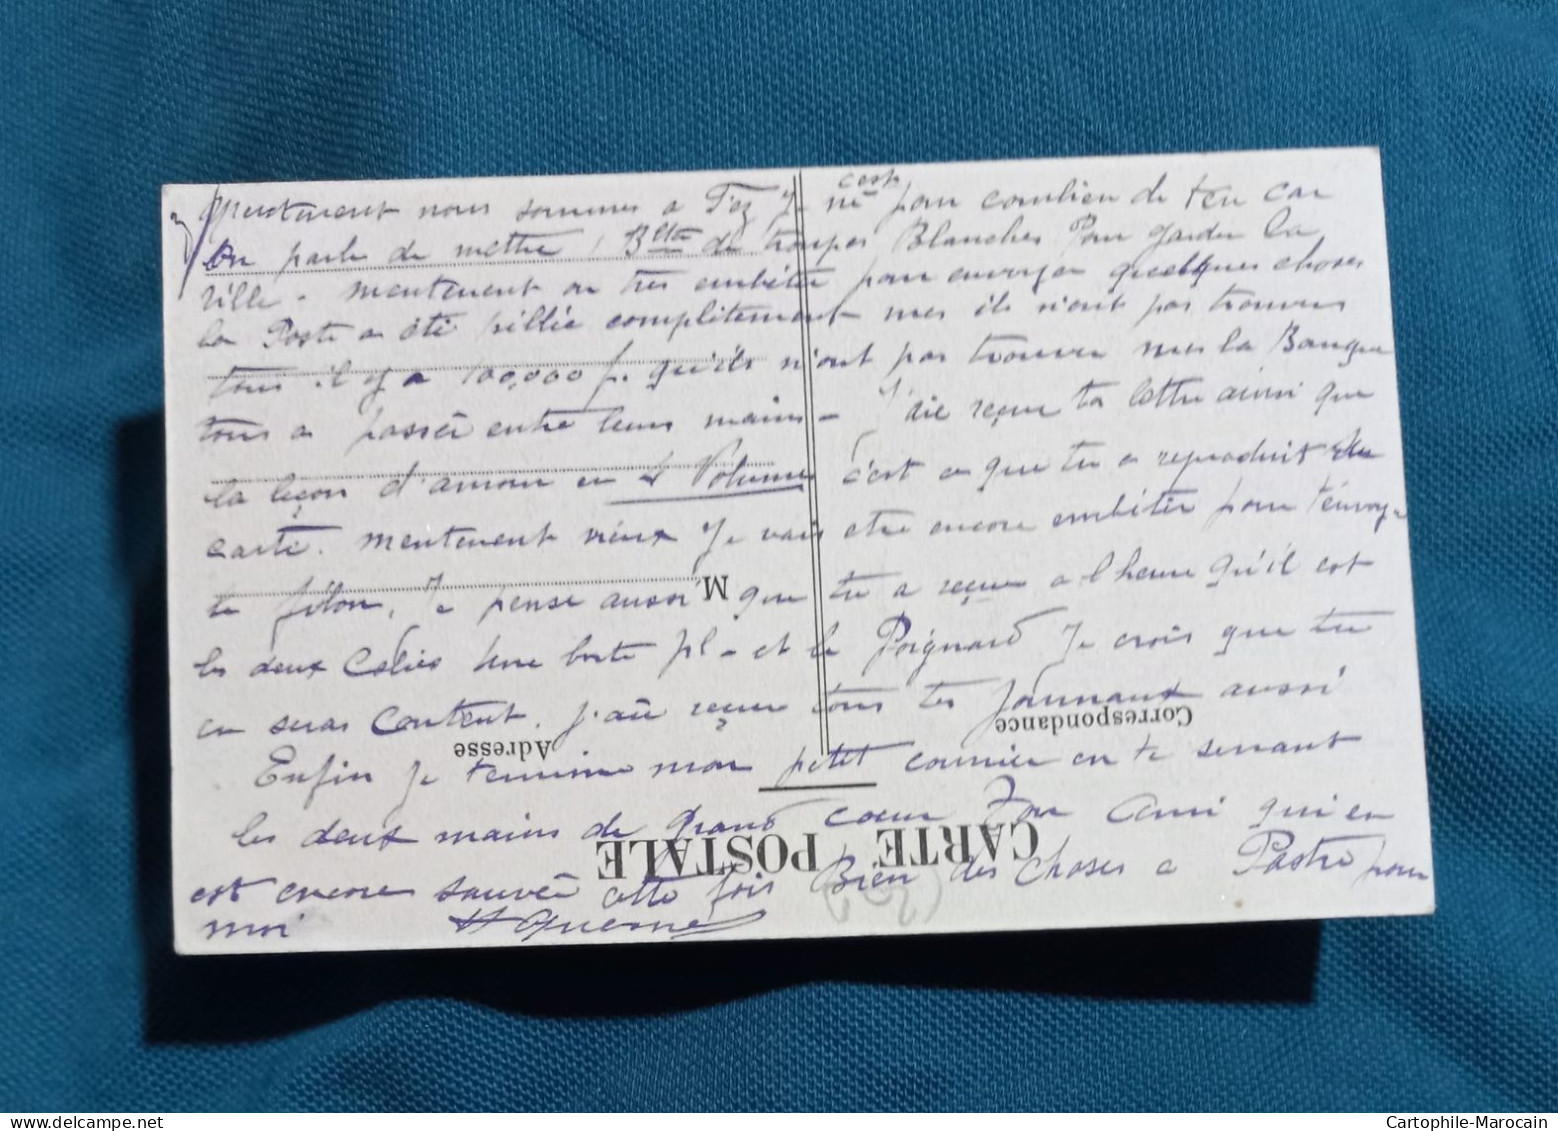 3/ Mentenent nous sommes a Fez Je ne c'est pour combien de ten car
On parle de mettre 1 Bton de troupes Blanches Pour garder la
ville - mentenent on tres embéter pour envoyer quelques choses
la Poste a été pillée complètement mes ils n'ont pas trouver
tous il y a 100,000 f. qu'ils n'ont pas trouver mes la Banque
tous a passée entre leurs mains - J'aie reçue ta lettre ainsi que
la leçon d'amour en 2 Volumes c'est ce que tu a reproduit
carte. mentenent vieux Je vais etre encore embéter pour t'envoyer
le filon, Je pense aussi que tu a reçue a l'heure qu'il est
les deux Colies Une boite pl - et le Poignard Je crois que tu
en seras Content. J'ai reçue tous tes Journaux aussi
Enfin je termine mon petit courrier en te serrant
les deux mains de grand cœur Ton Ami qui en
est encore sauvée cette fois Bien des Choses a Pastre pour
moi
M.
Correspondance
Adresse
CARTE POSTALE
delcampe.net
Cartophile-Marocain